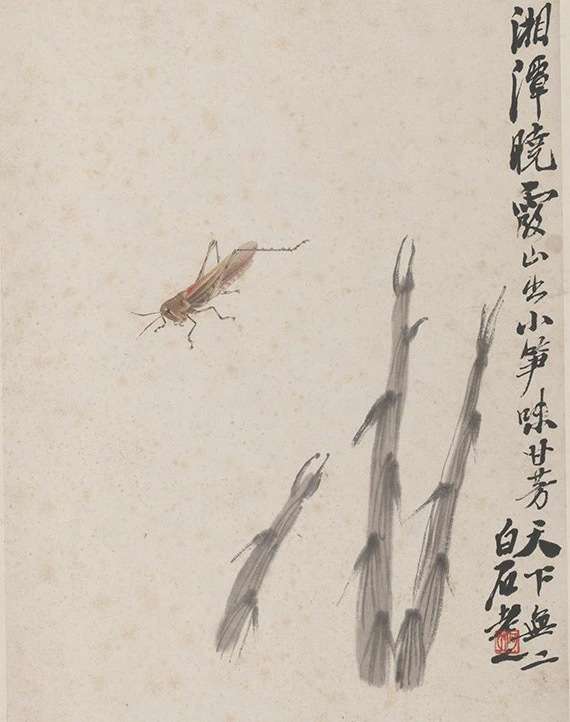 湘潭曉霞山出小笋味甘芳天下無二
白石老